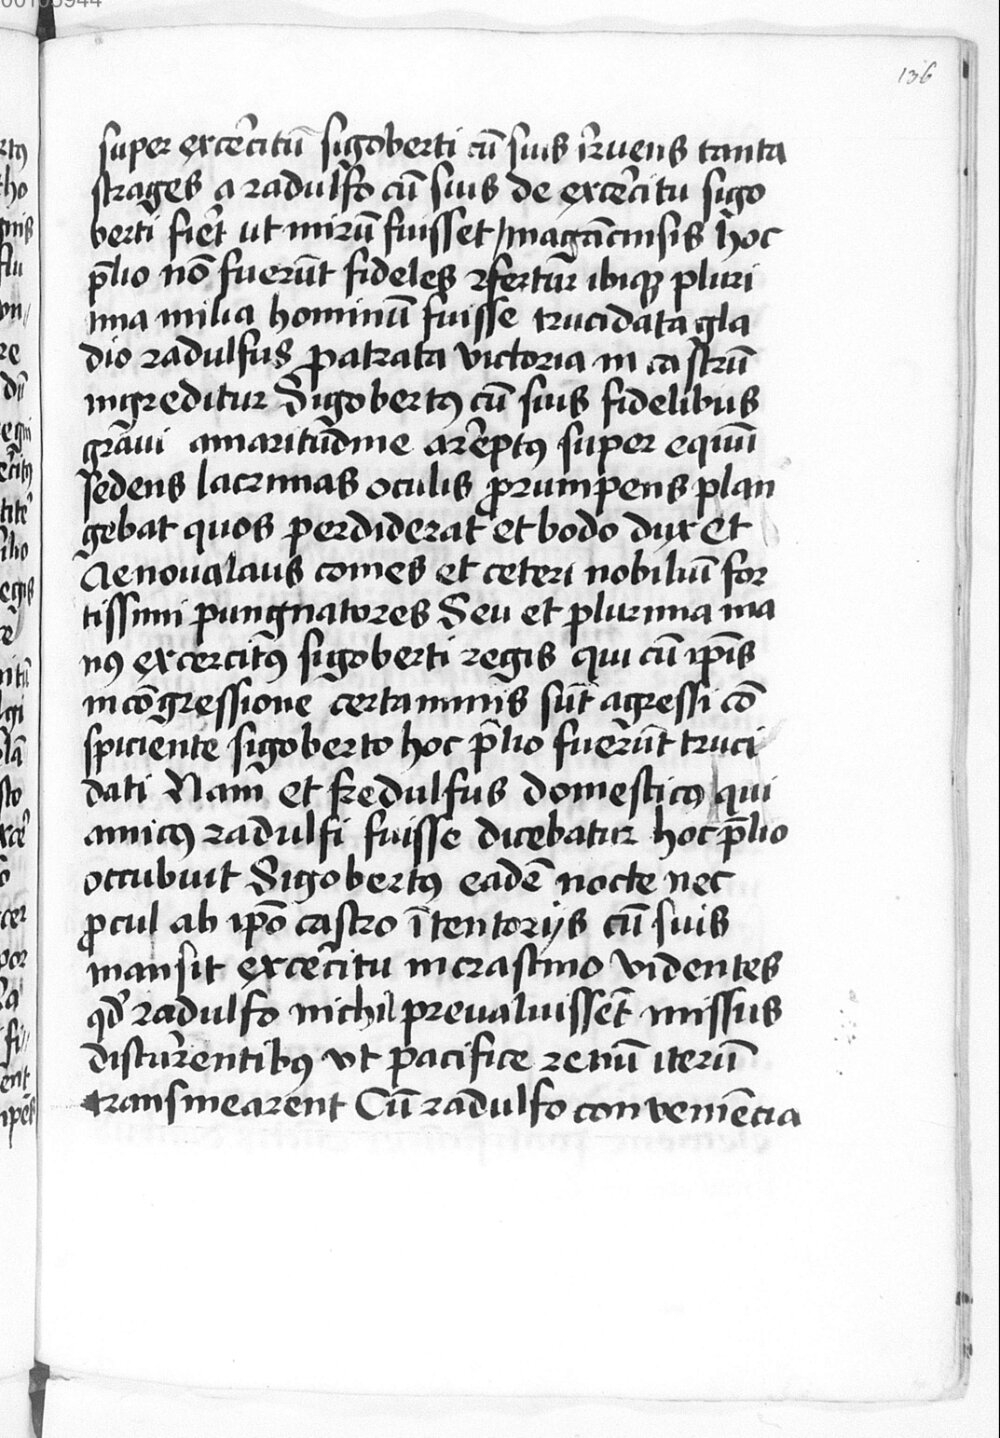 136
super exc̄citū sigoberti cū suis īruens tanta
strages a radulfo cū suis de exc̄citu sigo
berti fiēt ut mirū fuisset / magācensis hoc
p̄lio nō fuerūt fideles rfertur̄ ibiqꝫ pluri
ma milia hominū fuisse trucidata gla
dio radulfus ꝓpatrata victoria in castrū
ingreditur Sigobertꝰ cū suis fidelibus
graui amaritudine arēptꝰ super equū
sedens lacrimas oculis ꝓrumpens plan
gebat quos perdiderat et bodo dux et
Aenoualaus comes et ceteri nobiliū for
tissimi pungnatores Seu et plurima ma
nꝰ excercitꝰ sigoberti regis qui cū ip̄is
in cōgressione certaminis sūt agressi cō
spiciente sigoberto hoc p̄lio fuerūt truci
dati Nam et fredulfus domesticꝰ qui
amicꝰ radulfi fuisse dicebatur hoc p̄lio
occubuit Sigobertꝰ eadē nocte nec
ꝓcul ab ip̄o castro ī tentorijs cū suis
mansit exc̄citu in crastino videntes
qd̄ radulfo nichil preualuissēt missus
discur̄entibꝰ vt pacifice renū iterū
transmearent Cū radulfo conueniēcia